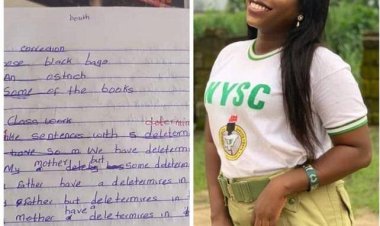 bouth
correction
ese black bags
An ostrich
Some of the books
Class work
like sentences with 5 determin
have So m We have determ
My mother but some ddeterm
father have a deletermires in
father but deletermires in
mother have a deletermires in
NYSC